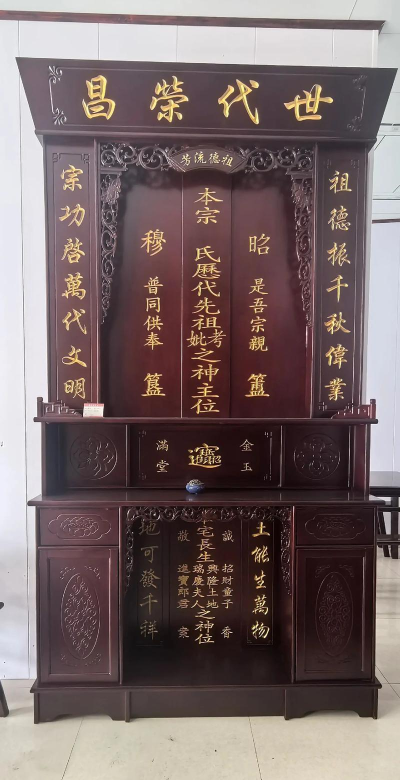 世代榮昌
祖德流芳
祖德振千秋偉業
昭 是吾宗親 簠
本宗 氏歷代先祖考妣之神主位
穆 普同供奉 簋
宗功啓萬代文明
金玉
招財進寶
滿堂
土能生萬物
誠 香
招財童子
宅長生興隆土地瑞慶夫人之神位
進寶郎君
敬
地可發千祥